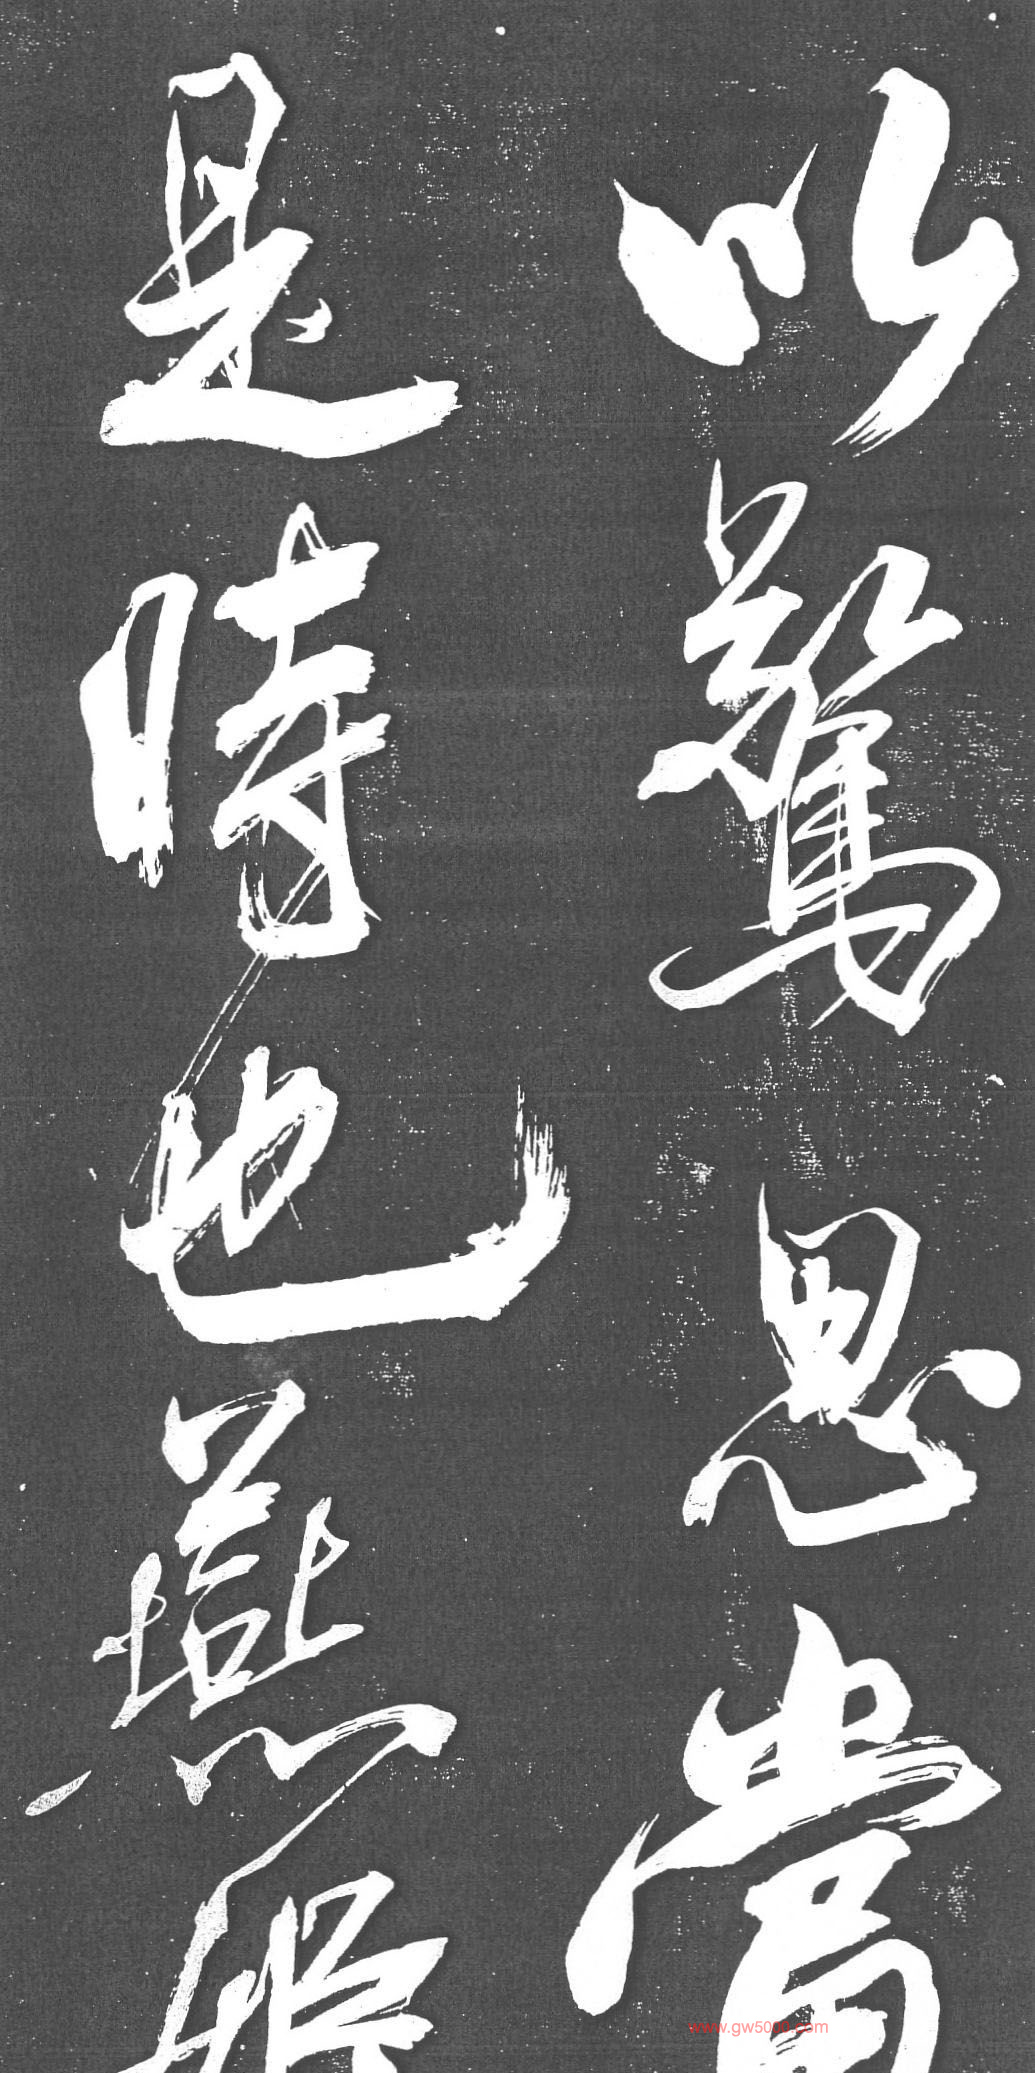 以驚思當
是時也燕
www.gw5000.com